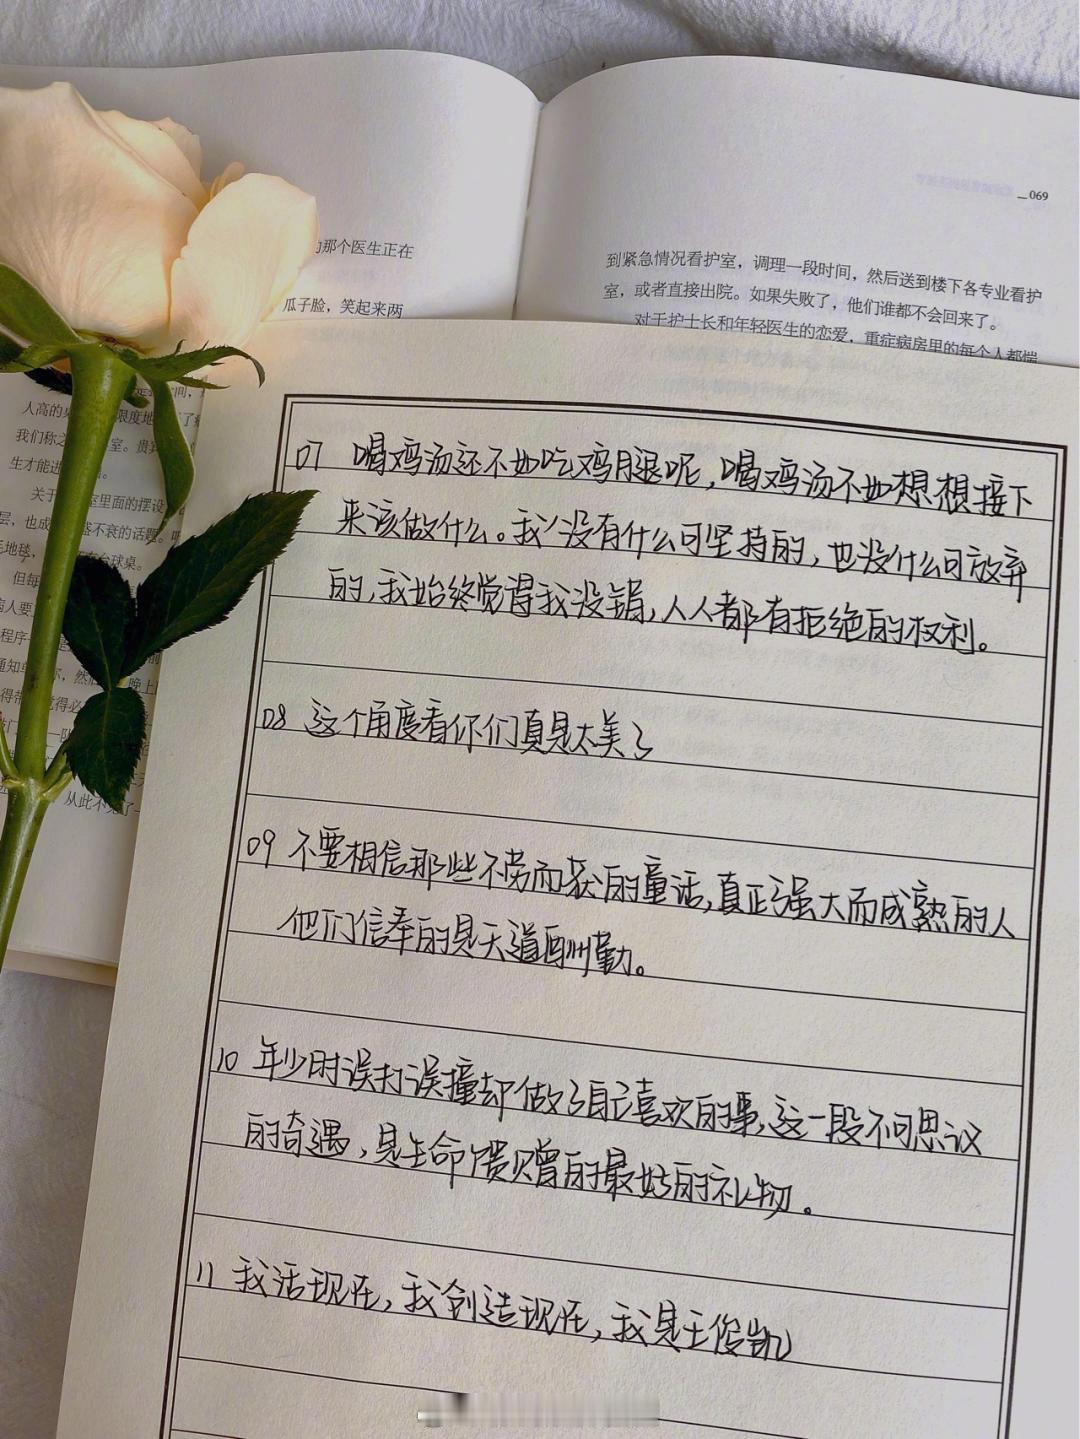 069
那个医生正在
瓜子脸，笑起来两
到紧急情况看护室，调理一段时间，然后送到楼下各专业看护
室，或者直接出院。如果失败了，他们谁都不会回来了。
对于护士长和年轻医生的恋爱，重症病房里的每个人都惴
人高的
限度地
我们称之
室。贵
生才能进
关于
室里面的摆设
层，也成
盛不衰的话题。
毛地毯，
台球桌。
但每
病人要
程序
通知单
你，然
晚上
得带
觉得必
敲门
一队
从此不见了
07 喝鸡汤还不如吃鸡腿呢，喝鸡汤不如想想接下
来该做什么。我没有什么可坚持的，也没什么可放弃
的，我始终觉得我没错，人人都有拒绝的权利。
08 这个角度看你们真是太美了
09 不要相信那些不劳而获的童话，真正强大而成熟的人
他们信奉的是天道酬勤。
10 年少时误打误撞却做了自己喜欢的事，这一段不可思议
的奇遇，是生命馈赠的最好的礼物。
11 我活现在，我创造现在，我是王俊凯